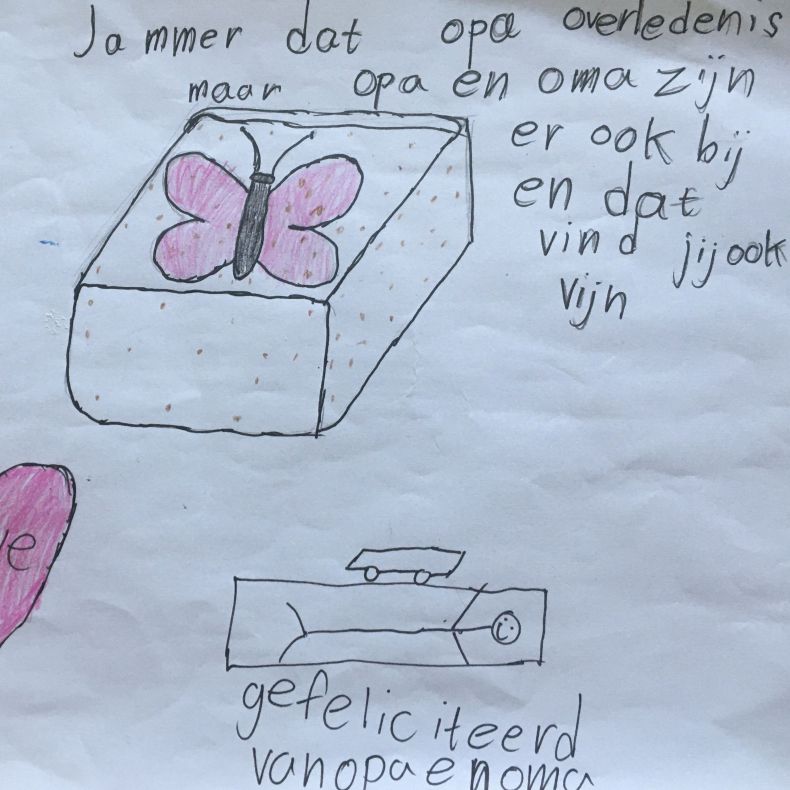 Jammer dat opa overledenis
maar opa en oma zijn
er ook bij
en dat
vind jij ook
vijn
ve
gefeliciteerd
vanopaenoma